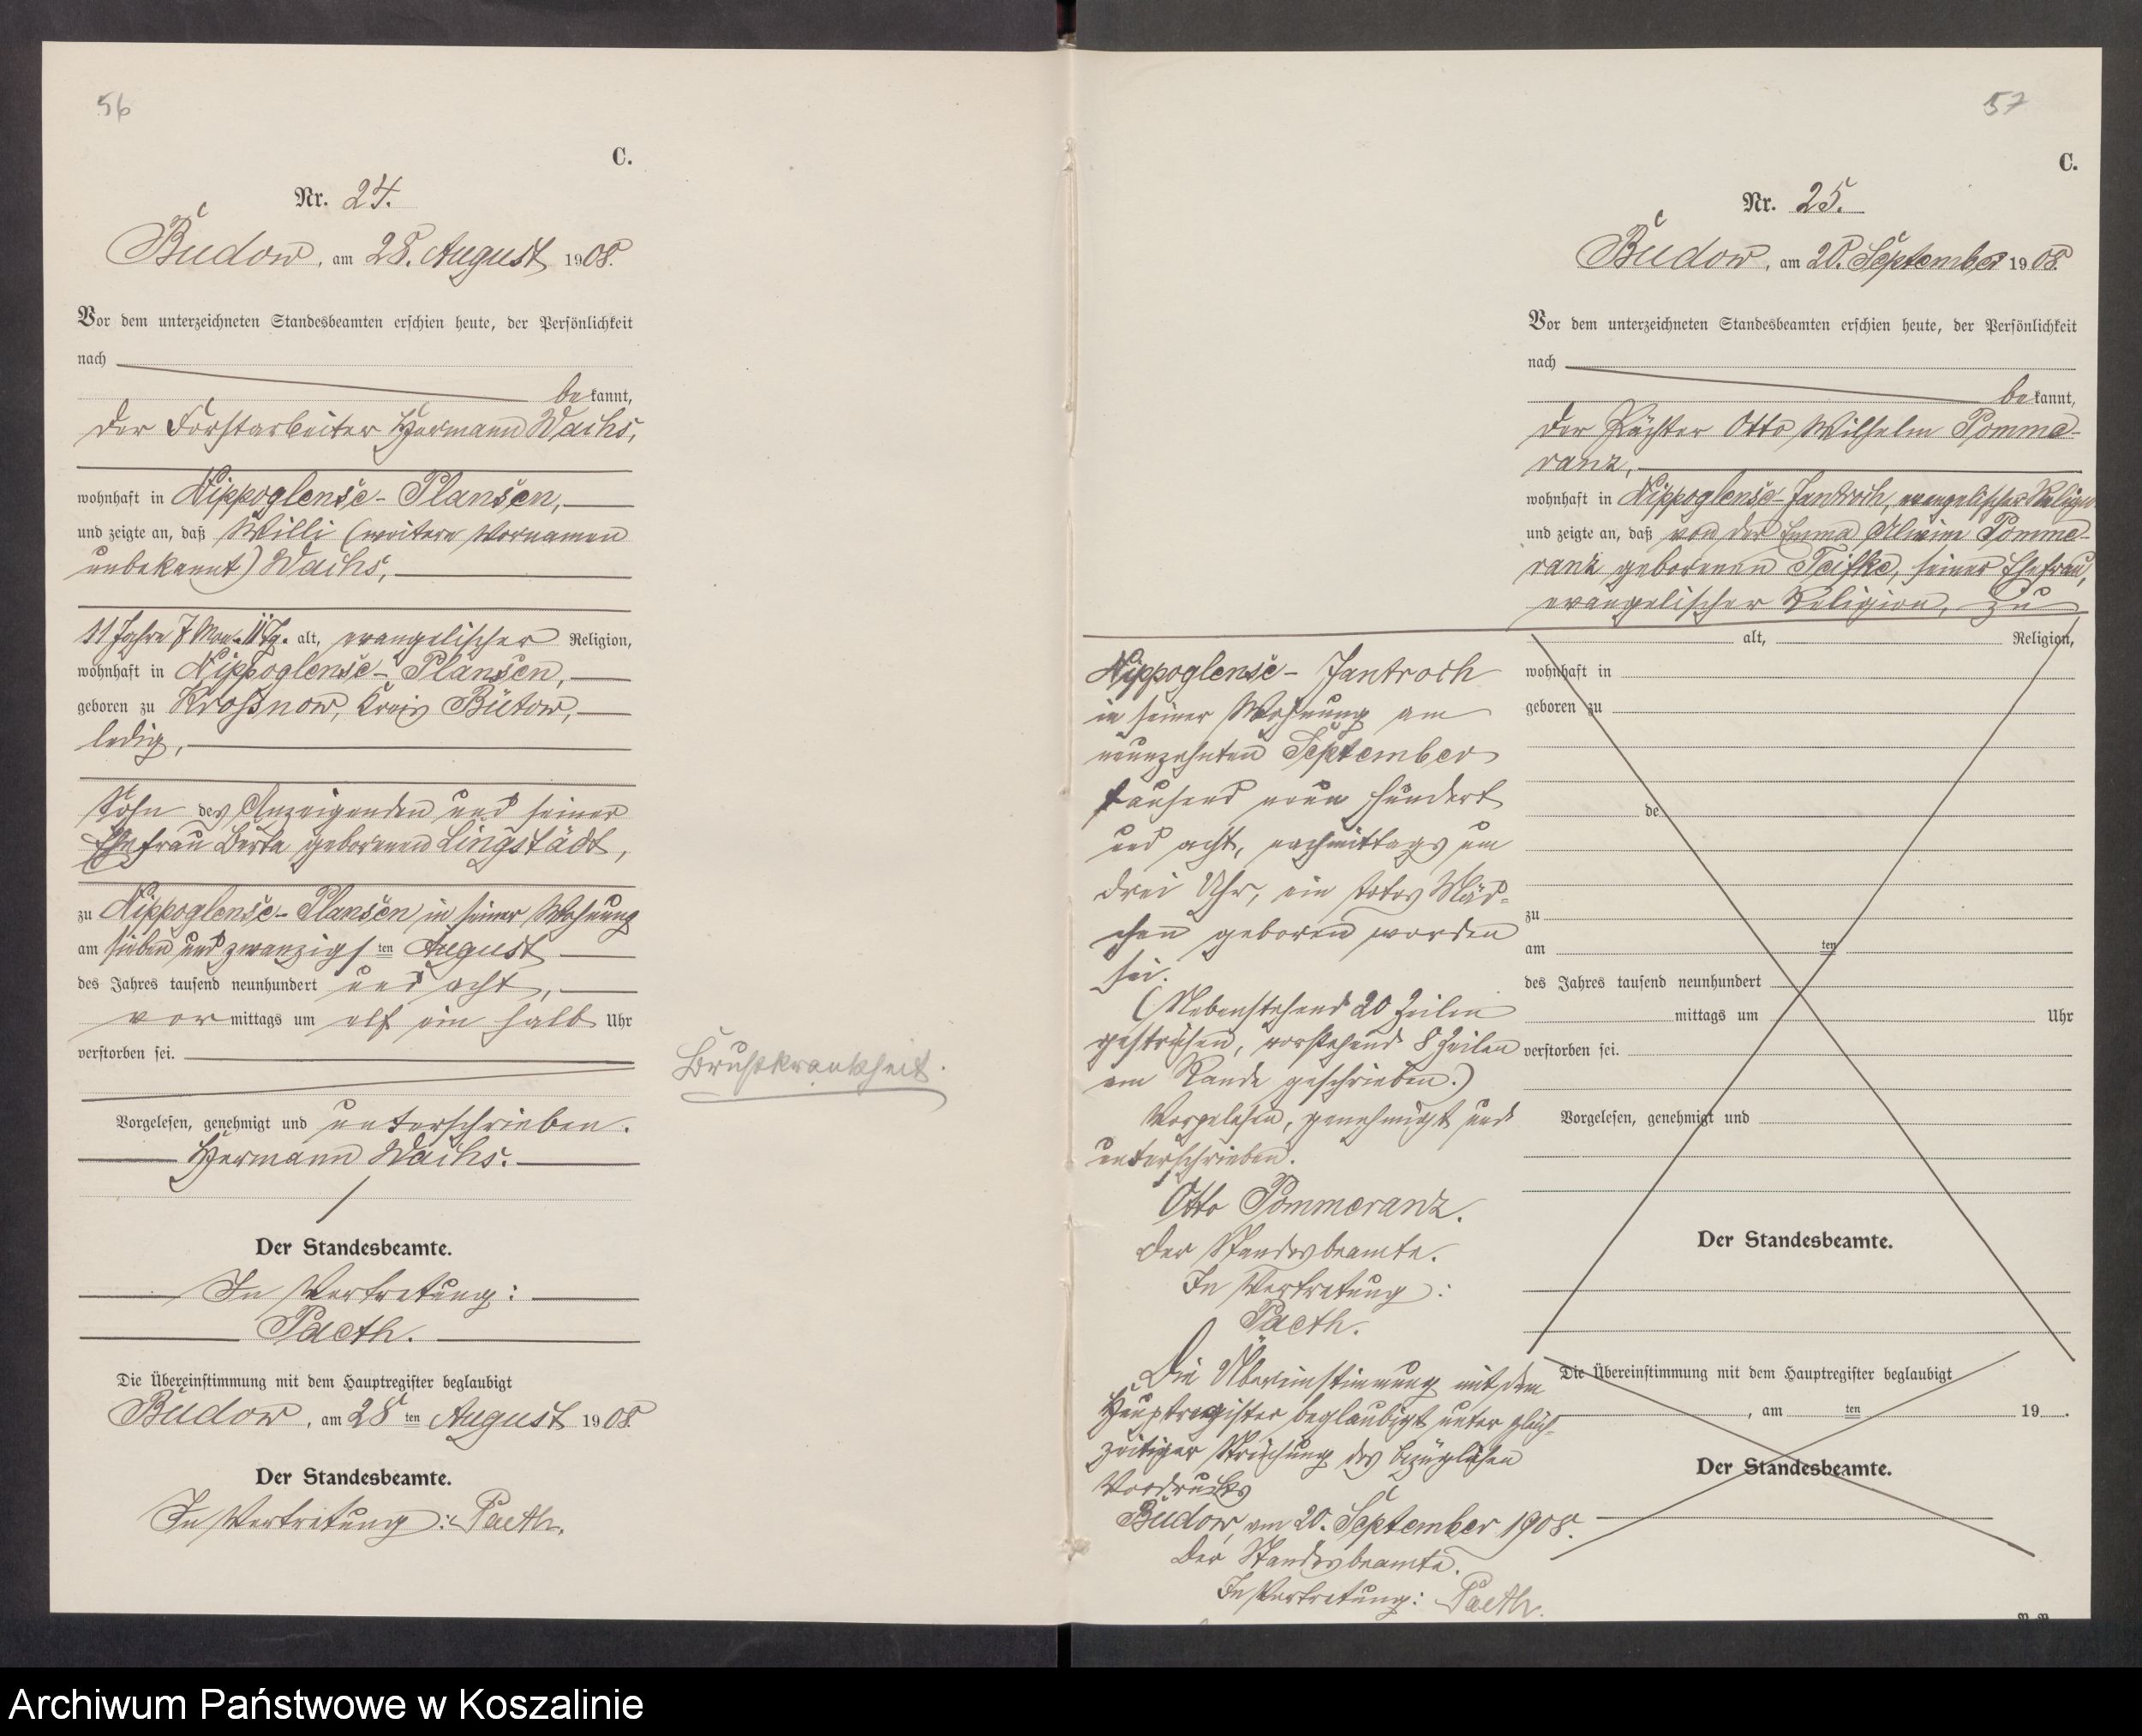 56
C.
Nr. 24.
Budow, am 28. August 1908.
Vor dem unterzeichneten Standesbeamten erschien heute, der Persönlichkeit
nach
bekannt,
der Forstarbeiter Hermann Wachs,
wohnhaft in Nippoglense-Plansen,
und zeigte an, daß Willi (weitere Vornamen
unbekannt) Wachs,
11 Jahre 7 Mon. 11 Tg. alt, evangelischer Religion,
wohnhaft in Nippoglense-Plansen,
geboren zu Kroßnow, Kreis Bütow,
ledig,
Sohn des Anzeigenden und seiner
Ehefrau Berta geborenen Lingstädt,
zu Nippoglense-Plansen in seiner Wohnung
am sieben und zwanzigsten August
des Jahres tausend neunhundert und acht,
vormittags um elf ein halb Uhr
verstorben sei.
Brustkrankheit.
Vorgelesen, genehmigt und unterschrieben.
Hermann Wachs.
Der Standesbeamte.
In Vertretung:
Paeth.
Die Übereinstimmung mit dem Hauptregister beglaubigt
Budow, am 28ten August 1908
Der Standesbeamte.
In Vertretung: Paeth.
57
C.
Nr. 25.
Budow, am 20. September 1908.
Vor dem unterzeichneten Standesbeamten erschien heute, der Persönlichkeit
nach
bekannt,
der Pächter Otto Wilhelm Pomme-
ranz,
wohnhaft in Nippoglense-Jantroch, evangelischer Religion
und zeigte an, daß von der Emma Pomme-
ranz geborenen seiner Ehefrau,
evangelischer Religion, zu
Nippoglense-Jantroch
in seiner Wohnung am
neunzehnten September
tausend neun hundert
und acht, nachmittags um
drei Uhr, ein totes Mäd-
chen geboren worden
sei.
(Nebenstehend 20 Zeilen
gestrichen, vorstehend 8 Zeilen
am Rande geschrieben.)
Vorgelesen, genehmigt und
unterschrieben.
Otto Pommeranz.
Der Standesbeamte.
In Vertretung:
Paeth.
Die Übereinstimmung mit dem
Hauptregister beglaubigt unter gleich-
zeitiger Streichung des bezüglichen
Vordrucks
Budow, am 20. September 1908.
Der Standesbeamte.
In Vertretung: Paeth.
alt, Religion,
wohnhaft in
geboren zu
de
zu
am ten
des Jahres tausend neunhundert
mittags um Uhr
verstorben sei.
Vorgelesen, genehmigt und
Der Standesbeamte.
Die Übereinstimmung mit dem Hauptregister beglaubigt
, am ten 19 .
Der Standesbeamte.
Archiwum Państwowe w Koszalinie